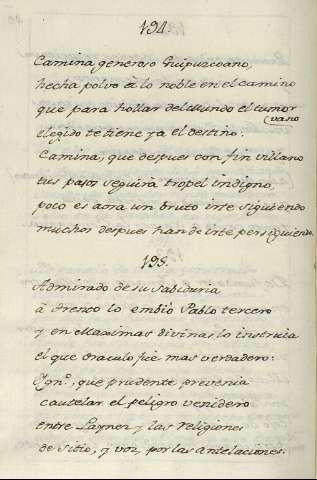 194.
Camina generoso Guipuzcoano,
hecha polvo à lo noble en el camino
que para hollar del Mundo el tumor
(vano
elegido te tiene ya el destino.
Camina, que despues con fin villano
tus pasos seguirà tropel indigno,
poco es aora un bruto irte siguiendo
muchos despues han de irte persiguiendo.
195.
Admirado de su sabiduria
à Trento lo embiò Pablo tercero
y en Maximas divinas lo instruìa
el que oraculo fuè mas verdadero:
Ign.º, que prudente prevenia
cautelar el peligro venidero
entre Laynez y las religiones
de sitio, y voz, por las antelaciones.